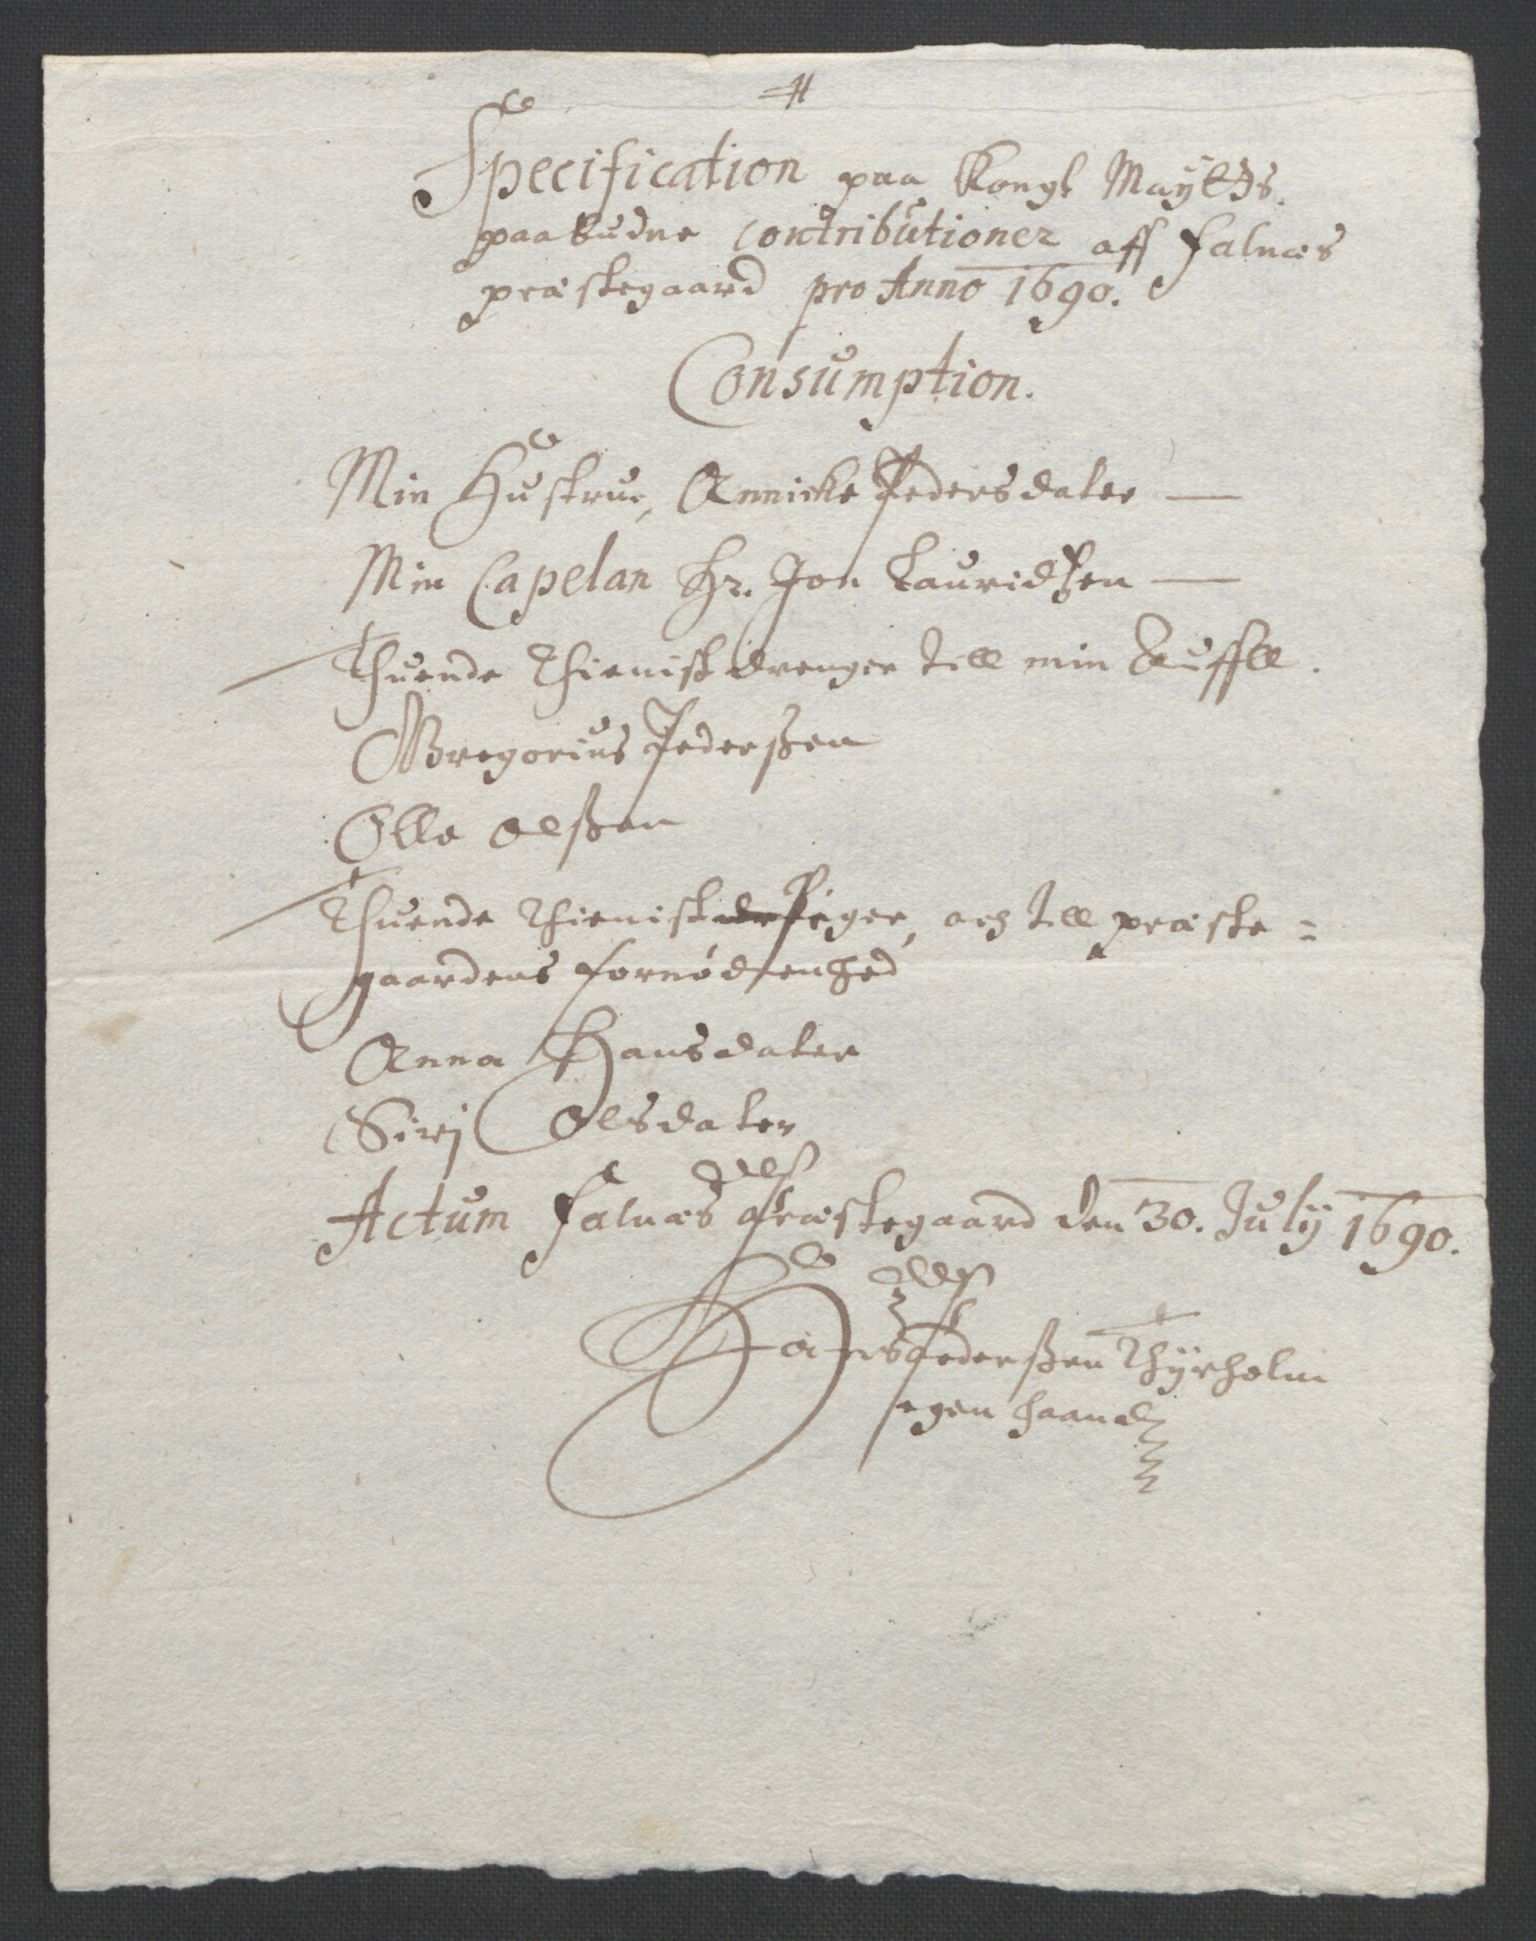 Specification paa Kongl Maÿtts.
paabudne Contributioner aff Falnæs
præstegaard pro Anno 1690.
Consumption.
Min Hustrue, Annicke Pedersdater —
Min Capelan Hr. Jon Lauridsen —
Thuende Thienistdrenger till min
Gregorius Pederssen
Olle Olssen
Thuende Thienist Piger, och till præste =
gaardens fornødenhed
Anna Hansdater
Sirj Olsdater
Actum Falnæs Præstegaard den 30. Julÿ 1690.
Hans Pederssen Thÿrholm
egen haand